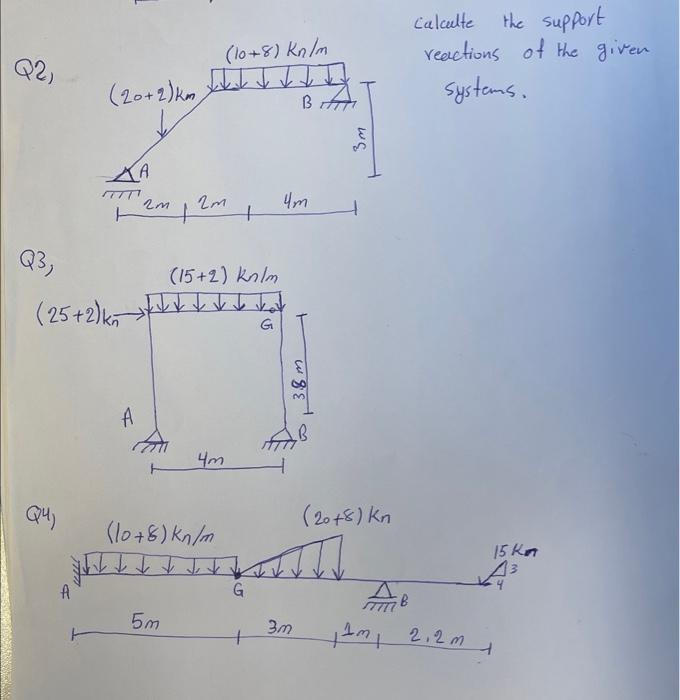 Calculte the support
reactions of the given
systems.
Q2,
(10+8) Kn/m
(20+2)Km
B
3m
A
2m 2m 4m
Q3,
(15+2) Kn/m
(25+2)kn
G
3.8 m
A
B
4m
Q4,
(10+8) Kn/m
(20+8) Kn
15 Kn
3
4
A
G
B
5m 3m 1m 2.2m